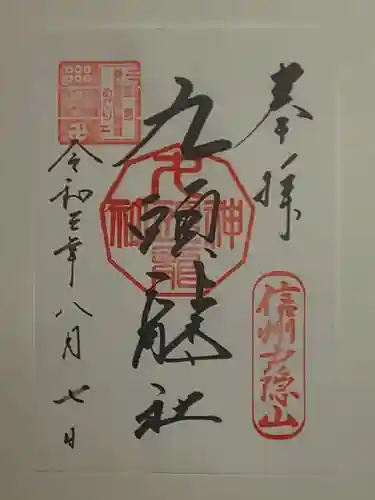 奉拝
信州戸隠山
九頭龍社
九頭龍神社
令和三年八月七日